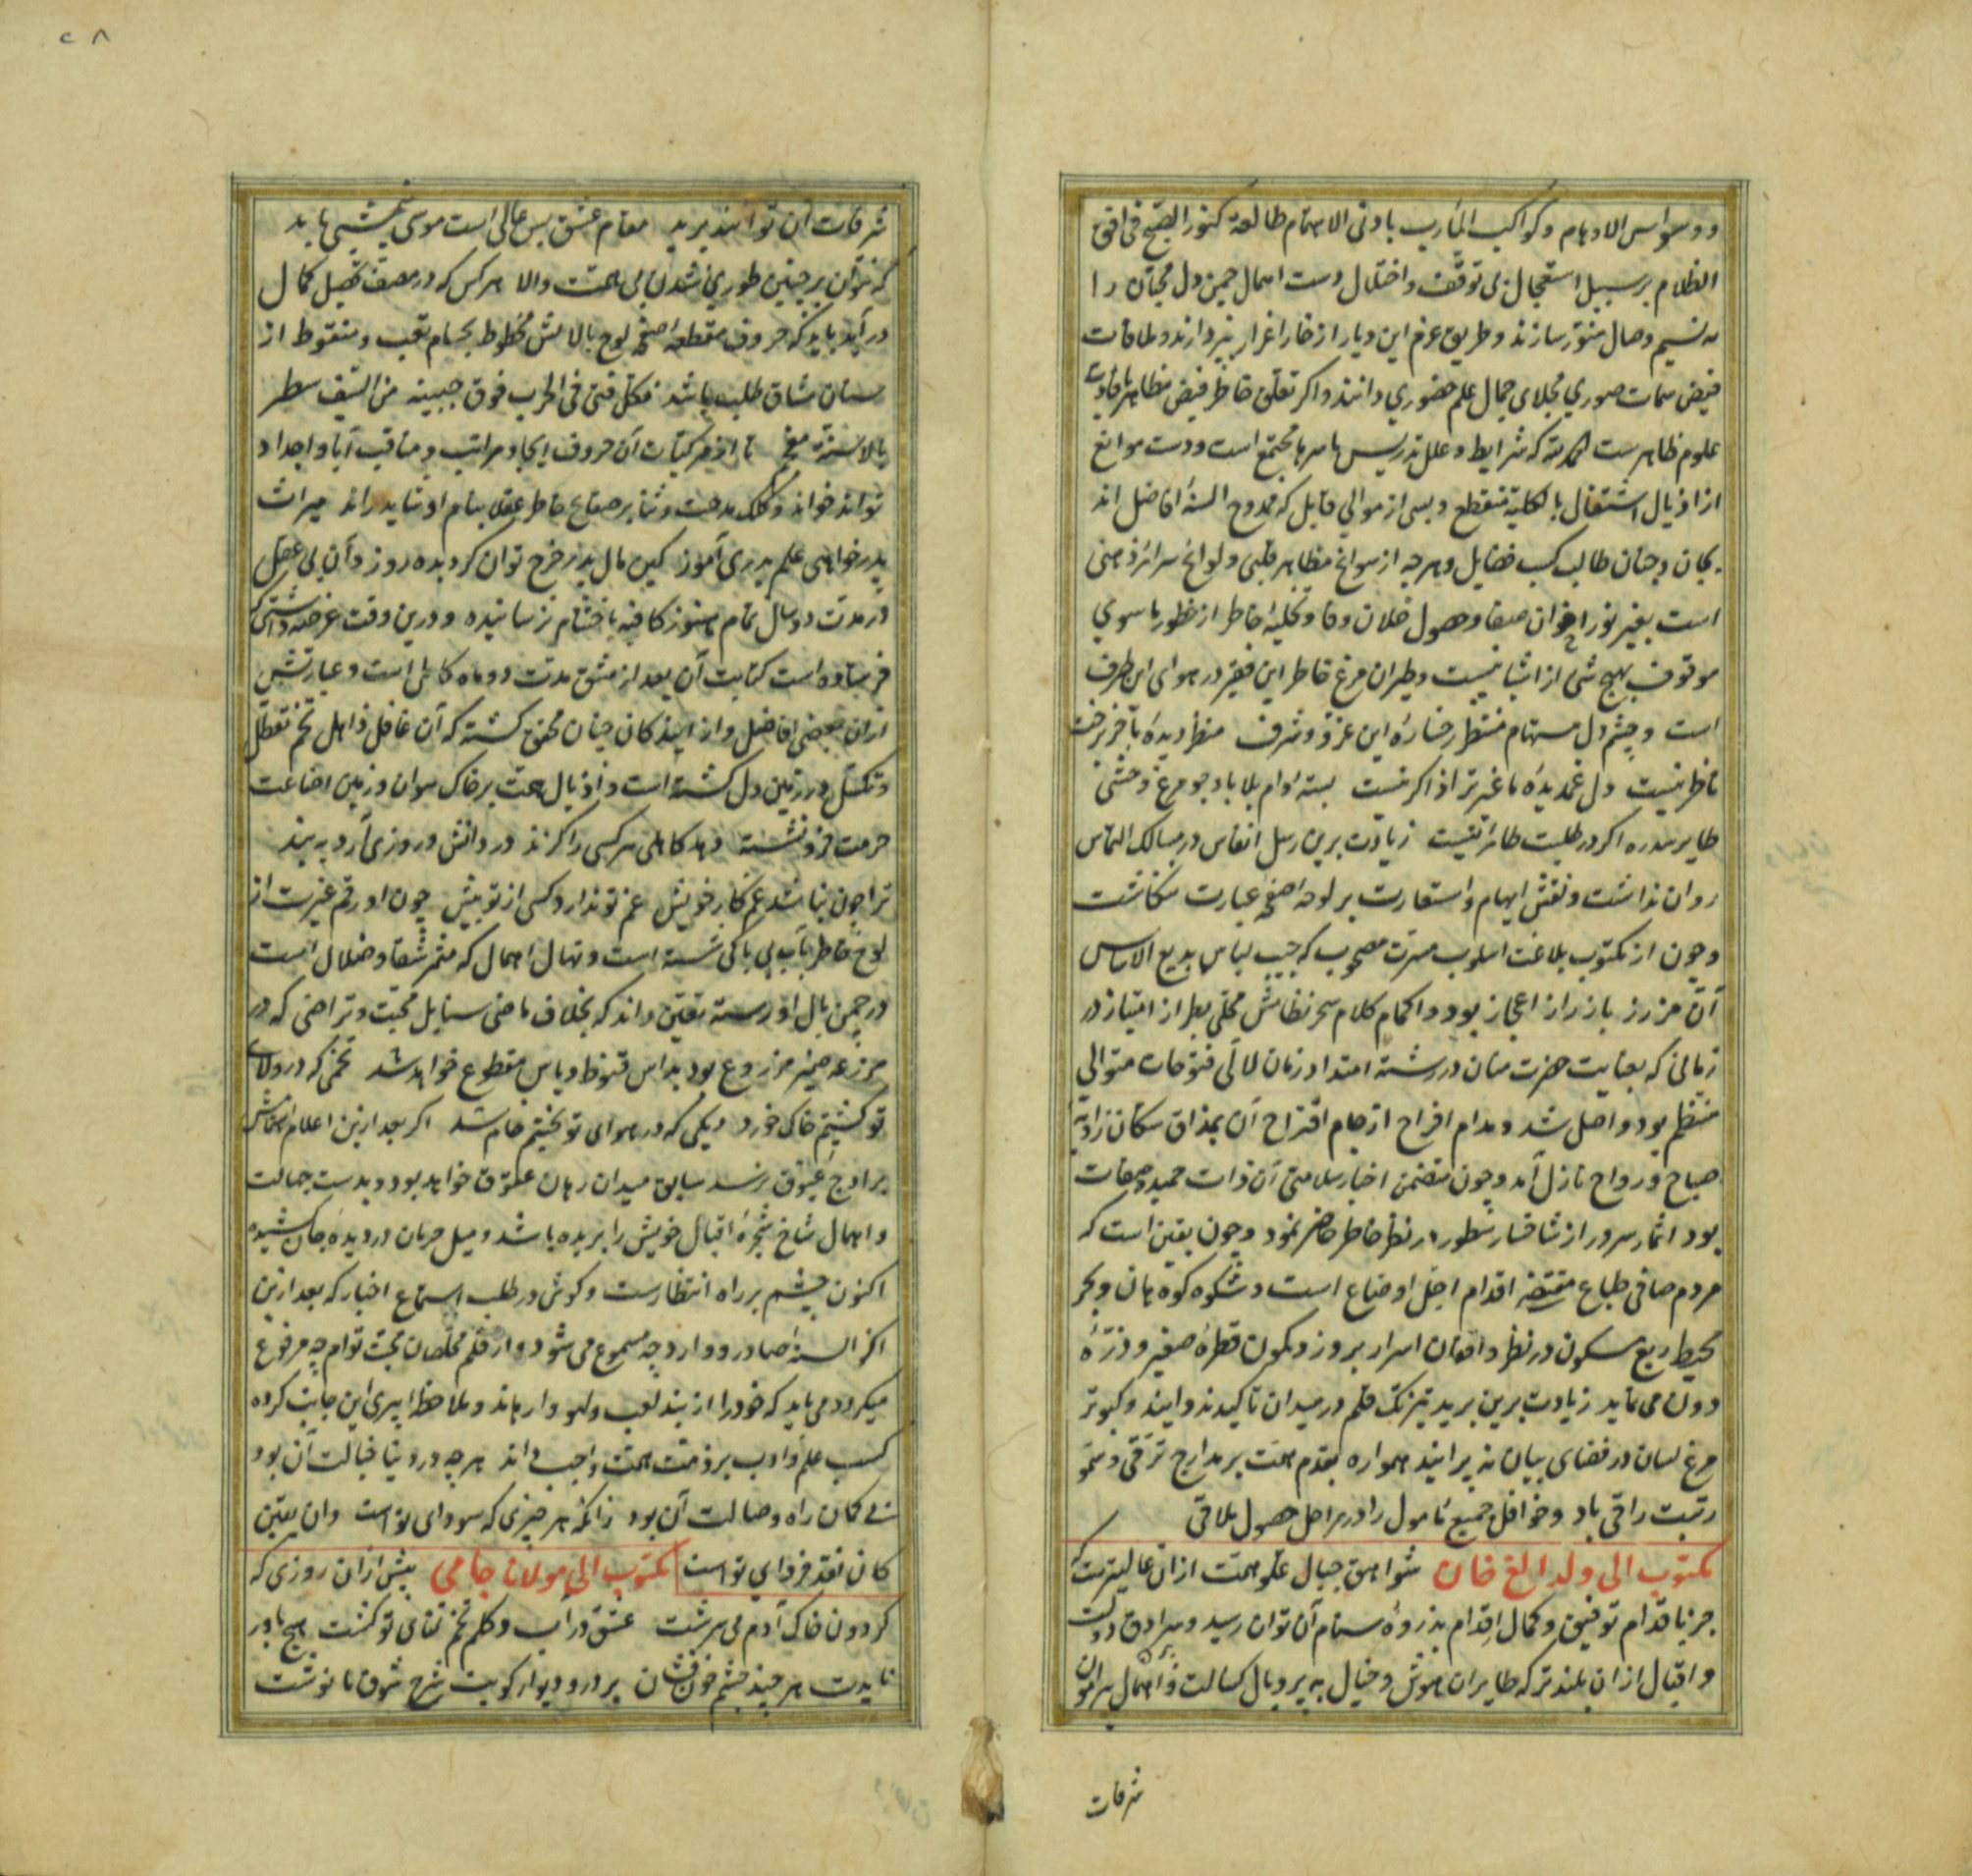 ووسواس الاوهام و کواکب المآرب بادنی الاهتمام طالعة کنور الصبح فی افق
الظلام بر سبیل استعجال بی توقف و اختلال دست اهمال چمن دل محبان را
به نسیم وصال منور سازند و طریق عزم این دیار از خار اغرار بپردازند و ملاقات
فیض سمات صوری مجلای جمال علم حضوری دانند و اگر تعلق خاطر فیض مظاهر بافادت
علوم ظاهرست الحمد لله که شرایط و علل تدریس باسرها مجتمع است و دست موانع
از اذیال اشتغال بالکلیة منقطع و بسی از موالی قابل که ممدوح السنهٔ افاضل اند
بجان و جنان طالب کسب فضایل و هرچه از سوانح مظاهر قلبی و لوایح سرائر ذهنی
است بغیر نور اخوان صفا و حصول خلان وفا و تخلیهٔ خاطر از خطور ماسوی
موقوف بهیچ شی از اشیا نیست و طیران مرغ خاطر این فقیر در هوای این طرف
است و چشم دل مستهام منتظر رخسارهٔ این عزة و شرف منظر دیده بآخر رخت
ناظر نیست دل غمدیدهٔ ما غیر ترا ذاکر نیست بستهٔ دام بلا باد چو مرغ وحشی
طایر سدره اگر در طلبت طائر نیست زیادت برین رسل انفاس در مسالک التماس
روان نداشت و نقش ایهام و استعارت بر لوحه اصفحهٔ عبارت ننگاشت
و چون از مکتوب بلاغت اسلوب مسرت مصحوب که جیب لباس بدیع الاساس
آن مزرر بازرار اعجاز بود و اکمام کلام سحر نظامش محلی بطراز امتیاز در
زمانی که بعنایت حضرت منان در رشتهٔ امتداد زمان لآلی فتوحات متوالی
منتظم بود واصل شد و مدام افراح از جام اقتراح آن بمذاق سکان زاویهٔ
صباح و رواح نازل آمد و چون متضمن اخبار سلامتی آن ذات حمیده صفات
بود اثمار سرور از شاخسار سطور در نظر خاطر حاضر نمود و چون یقین است که
مردم صافی طباع مقتضی اقدام اجل اوضاع است و شکوه کوه هان و بحر
محیط ربع مسکون در نظر واقفان اسرار بروز و کمون قطرهٔ صغیر و ذرهٔ
دون می نماید زیادت برین برید تیزتک قلم در میدان تاکید ندوانید و کبوتر
مرغ لسان در فضای بیان نه پرانید همواره بقدم همت بر مدارج ترقی و سمو
رتبت راقی باد و خوافل جمیع مامول را در مراحل حصول ملاقی
مکتوب الی ولد الغ خان شواهق جبال علو همت از ان عالیترست که
جز باقدام توفیق و کمال اقدام بذروهٔ سنام آن توان رسید و سرادق دولت
و اقبال ازان بلندتر که طایران هوش و خیال به پر و بال کسالت و اهمال پیرامون
شرفات
۲۸
شرفات آن توانند پرید مقام عشق بس عالی است موسی همتی باید
که نتوان بر چنین طوری شدن بی همت والا هر کس که در صف تحصیل کمال
درآید باید که حروف مقطعه اصفحهٔ لوح بالالش مخطوط بحسام تعب و منقوط از
سنان مشاق طلب باشد فکل فتی فی الحرب فوق جبینه من السیف سطر
بالاسنة معجم تا از مرکبات آن حروف ابجاد مراتب و مناقب آبا و اجداد
تواند خواند و کلک مدحت و ثنا بر صفایح خاطر عقلا بنام او شاید راند میراث
پدر خواهی علم پدری آموز کین مال پدر خرج توان کرد بده روز و آن بی عقل
در مدت دو سال تمام هنوز کافیه باختتام نرسانیده و درین وقت عرضه داشتی که
فرستاده است کتابت آن بعد از مشق مدت دو ماه کامل است و عبارتش
از ان بعضی افاضل و از ایندکان چنان محقق گشته که آن غافل ذاهل تخم تعطل
و تکسل در زمین دل کشته است و اذیال همت بر خاک هوان و زمین اضاعت
حرمت فرو نشسته دهد کاهلی هر کسی را گزند در دانش و روزی آرد به بند
ترا چون نباشد غم کار خویش غم تو ندارد کسی از تو بیش چون او رقم غیرت از
لوح خاطر بآب بی باکی شسته است و نهال اهمال که مثمر شقا و ضلال است
در چمن بال او رسته یقین داند که بخلاف ماضی سنابل محبت و تراضی که در
مزرعه ضمیر مزروع بود بداس قنوط و یاس مقطوع خواهد شد تخمی که در ولای
تو کشتیم خاک خورد دیگی که در هوای تو پختیم خام شد اگر بعد ازین اعلام اهتمامش
بر اوج عیوق نرسد سابق میدان رهان عقوق خواهد بود و بدست جهالت
و اهمال شاخ شجرهٔ اقبال خویش را بریده باشد و میل حرمان در دیدهٔ جان کشیده
اکنون چشم بر راه انتظارست و گوش در طلب استماع اخبار که بعد ازین
اکثر السنهٔ صادر و وارد چه مسموع می شود و از قلم مخلصان محبت توام چه مرفوع
میگردد می باید که خود را از بند لعب و لهو وارهاند و ملاحظهٔ پیری این جانب کرده
کسب علم و ادب بر ذمت همت واجب داند هرچه در دنیا خیالت آن بود
نی گمان راه وصالت آن بود زانکه هر چیزی که سودای تو است وان یقین
کان نقد فردای تو است مکتوب الی مولانا جامی پیش ازان روزی که
گردون خاک آدم می سرشت عشق در آب و گلم تخم تمنای تو کشت هیچ باور
نایدت هر چند چشم خون فشان بر در و دیوار کویت شرح شوق ما نوشت